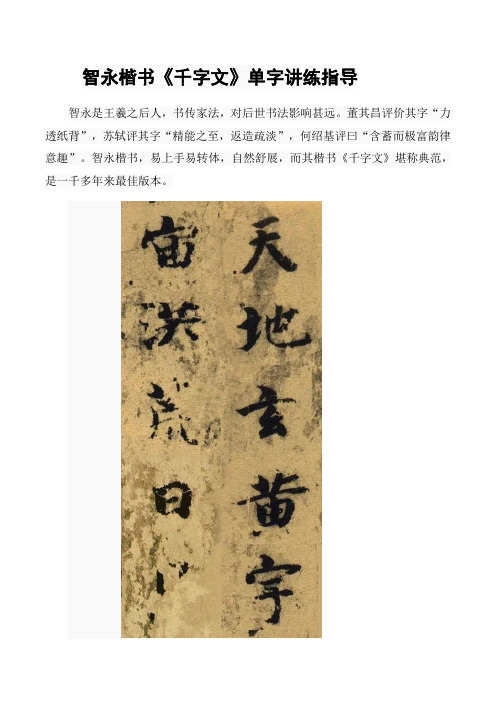 智永楷书《千字文》单字讲练指导
智永是王羲之后人，书传家法，对后世书法影响甚远。董其昌评价其字“力
透纸背”，苏轼评其字“精能之至，返造疏淡”，何绍基评曰“含蓄而极富韵律
意趣”。智永楷书，易上手易转体，自然舒展，而其楷书《千字文》堪称典范，
是一千多年来最佳版本。
天地玄黄宇
宙洪荒日